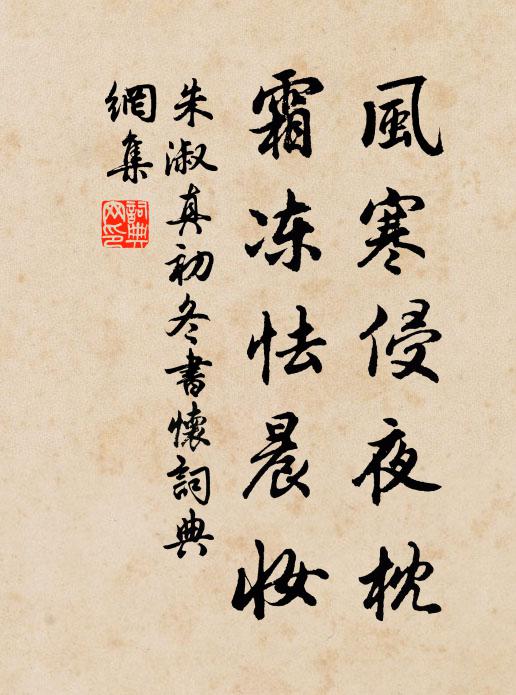 風寒侵夜枕
霜冻怯晨妆
朱淑真初冬書懷詞典
網集
詞典
网印